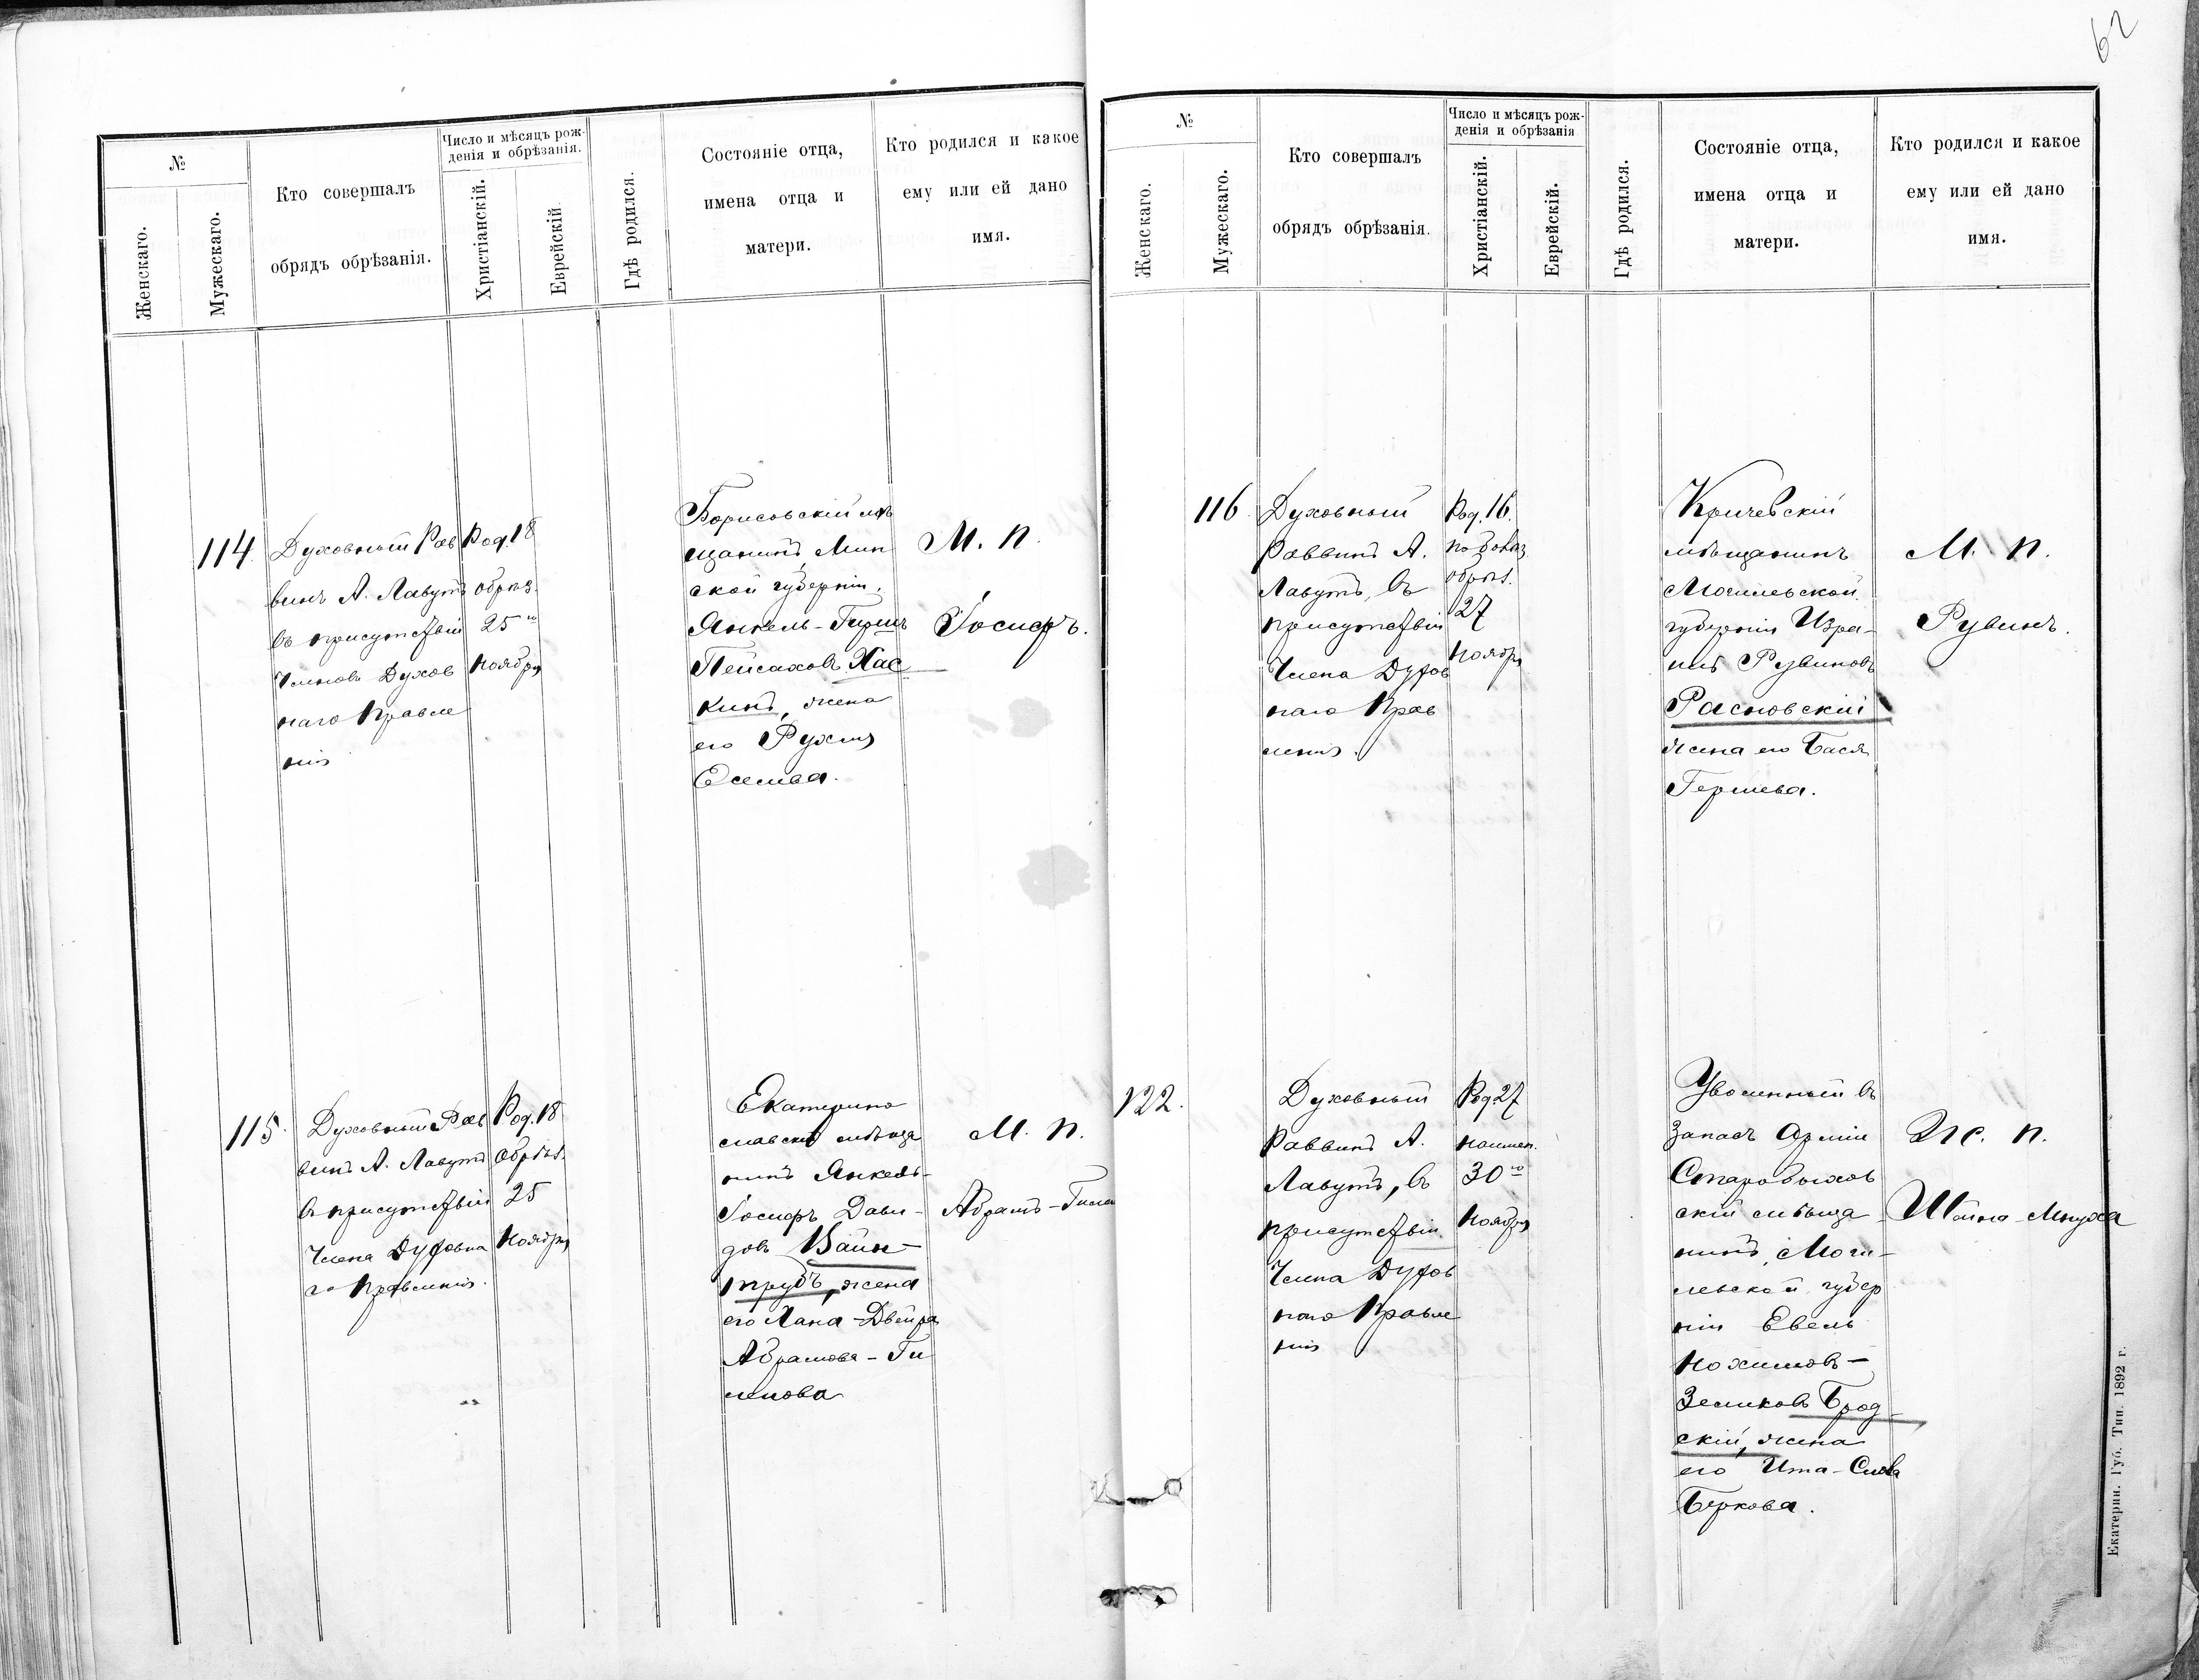 62
№
Женскаго.
Мужескаго.
Кто совершалъ
обрядъ обрѣзанія.
Число и мѣсяцъ рож-
денія и обрѣзанія.
Христіанскій.
Еврейскій.
Гдѣ родился.
Состояніе отца,
имена отца и
матери.
Кто родился и какое
ему или ей дано
имя.
114
Духовный Рав
винъ А. Лавутъ
въ присутствіи
Членовъ Духов
наго Правле
нія
Род. 18
обрѣз.
25го
Ноября
Борисовскій мѣ
щанинъ, Мин
ской губерніи,
Янкель-Гиршъ
Пейсаховъ Хас
кинъ, жена
его Рухля
Еселева.
М. п.
Іосифъ.
115.
Духовный Рав
винъ А. Лавутъ
въ присутствіи
Члена Духовна
го Правленія.
Род. 18
Обрѣз.
25
Ноября
Екатерино
славскій мѣща
нинъ Янкель-
Іосифъ Дави-
довъ Вайн-
трубъ, жена
его Хана-Двейра
Абрамова-Ги
лелова
М. п.
Абрамъ-Гилел
№
Женскаго.
Мужескаго.
Кто совершалъ
обрядъ обрѣзанія.
Число и мѣсяцъ рож-
денія и обрѣзанія
Христіанскій.
Еврейскій.
Гдѣ родился.
Состояніе отца,
имена отца и
матери.
Кто родился и какое
ему или ей дано
имя.
116.
Духовный
Раввинъ А.
Лавутъ, въ
присутствіи
Члена Духов
наго Прав
ленія.
Род. 16.
по болѣз.
обрѣз.
27
Ноября
Кричевскій
мѣщанинъ
Могилевской
губерніи Изра-
иль Рувиновъ
Расновскій
жена его Бася
Гершева.
М. п.
Рувинъ.
122.
Духовный
Раввинъ А.
Лавутъ, въ
присутствіи
Члена Духов
наго Правле
нія
Род. 27
наимен.
30го
Ноября
Уволенный въ
Запасъ Арміи
Старобыхов
скій мѣща-
нинъ, Моги-
левской губер
ніи Евель
Нохимовъ-
Зеликовъ Брод-
скій, жена
его Ита-Слова
Беркова.
Ж. п.
Шейна-Мнуха
Екатерин. Губ. Тип. 1892 г.